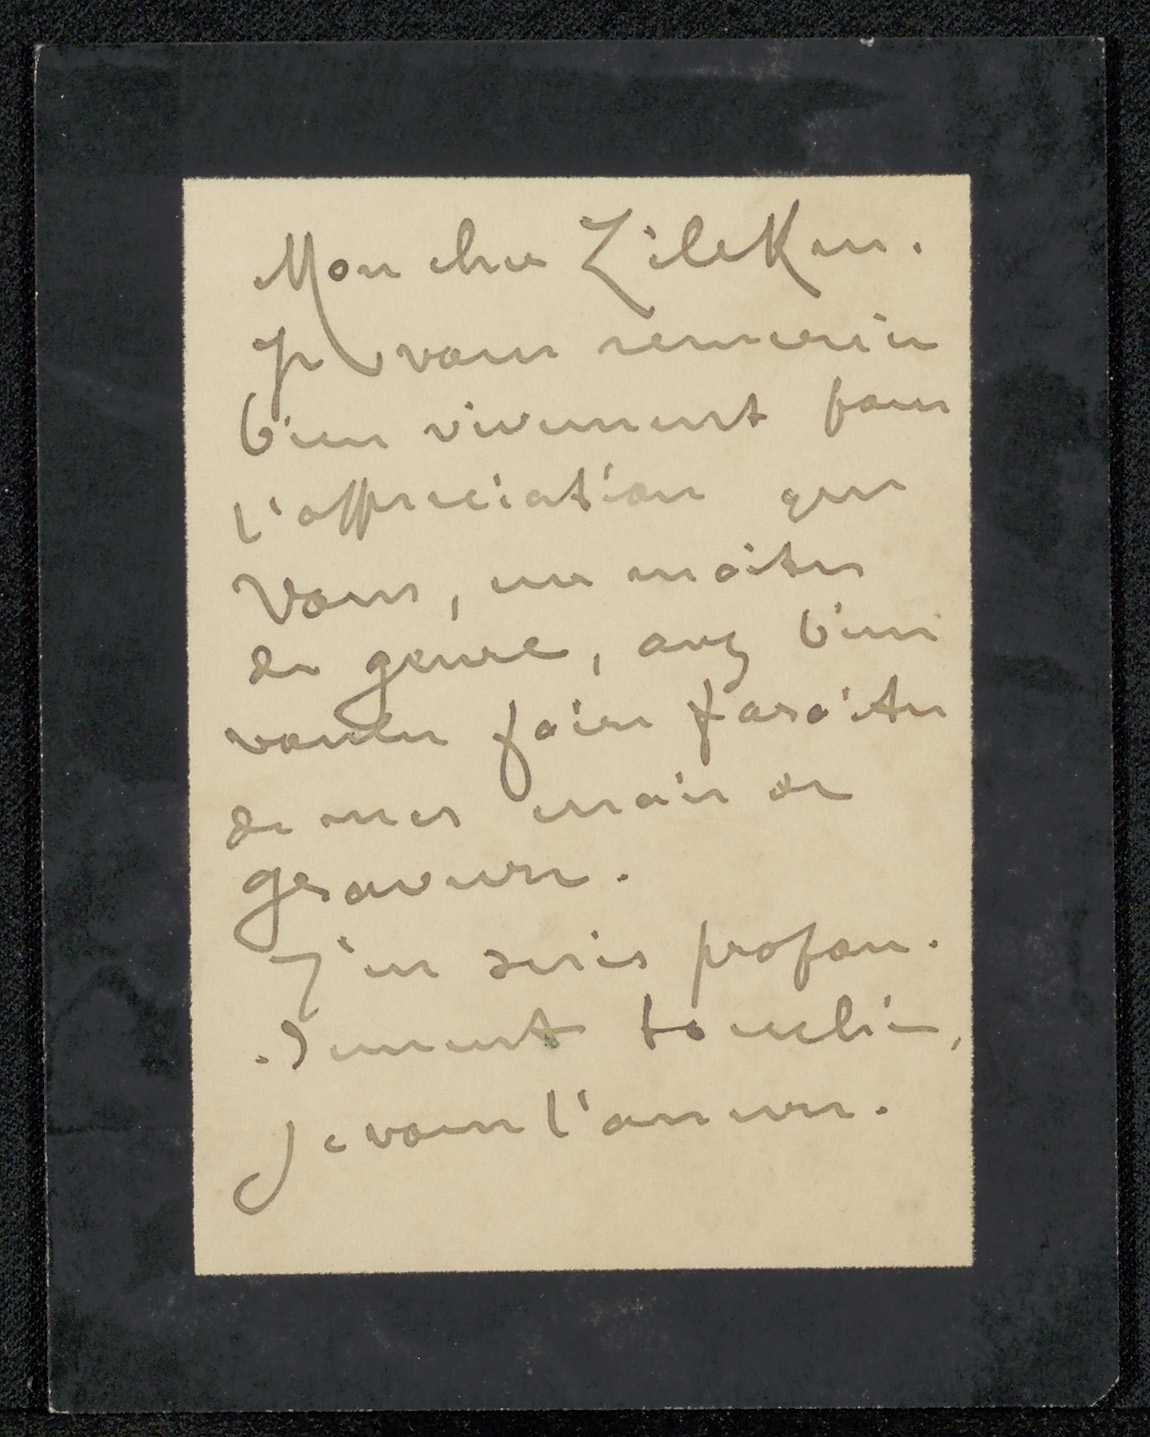 Mon cher Zilcken.
Je vous remercie
bien vivement pour
l'appréciation que
vous, un maître
du genre, avez bien
voulu faire paraître
de mes essais de
gravure.
J'en suis profon.
.dement touché,
je vous l'assure.